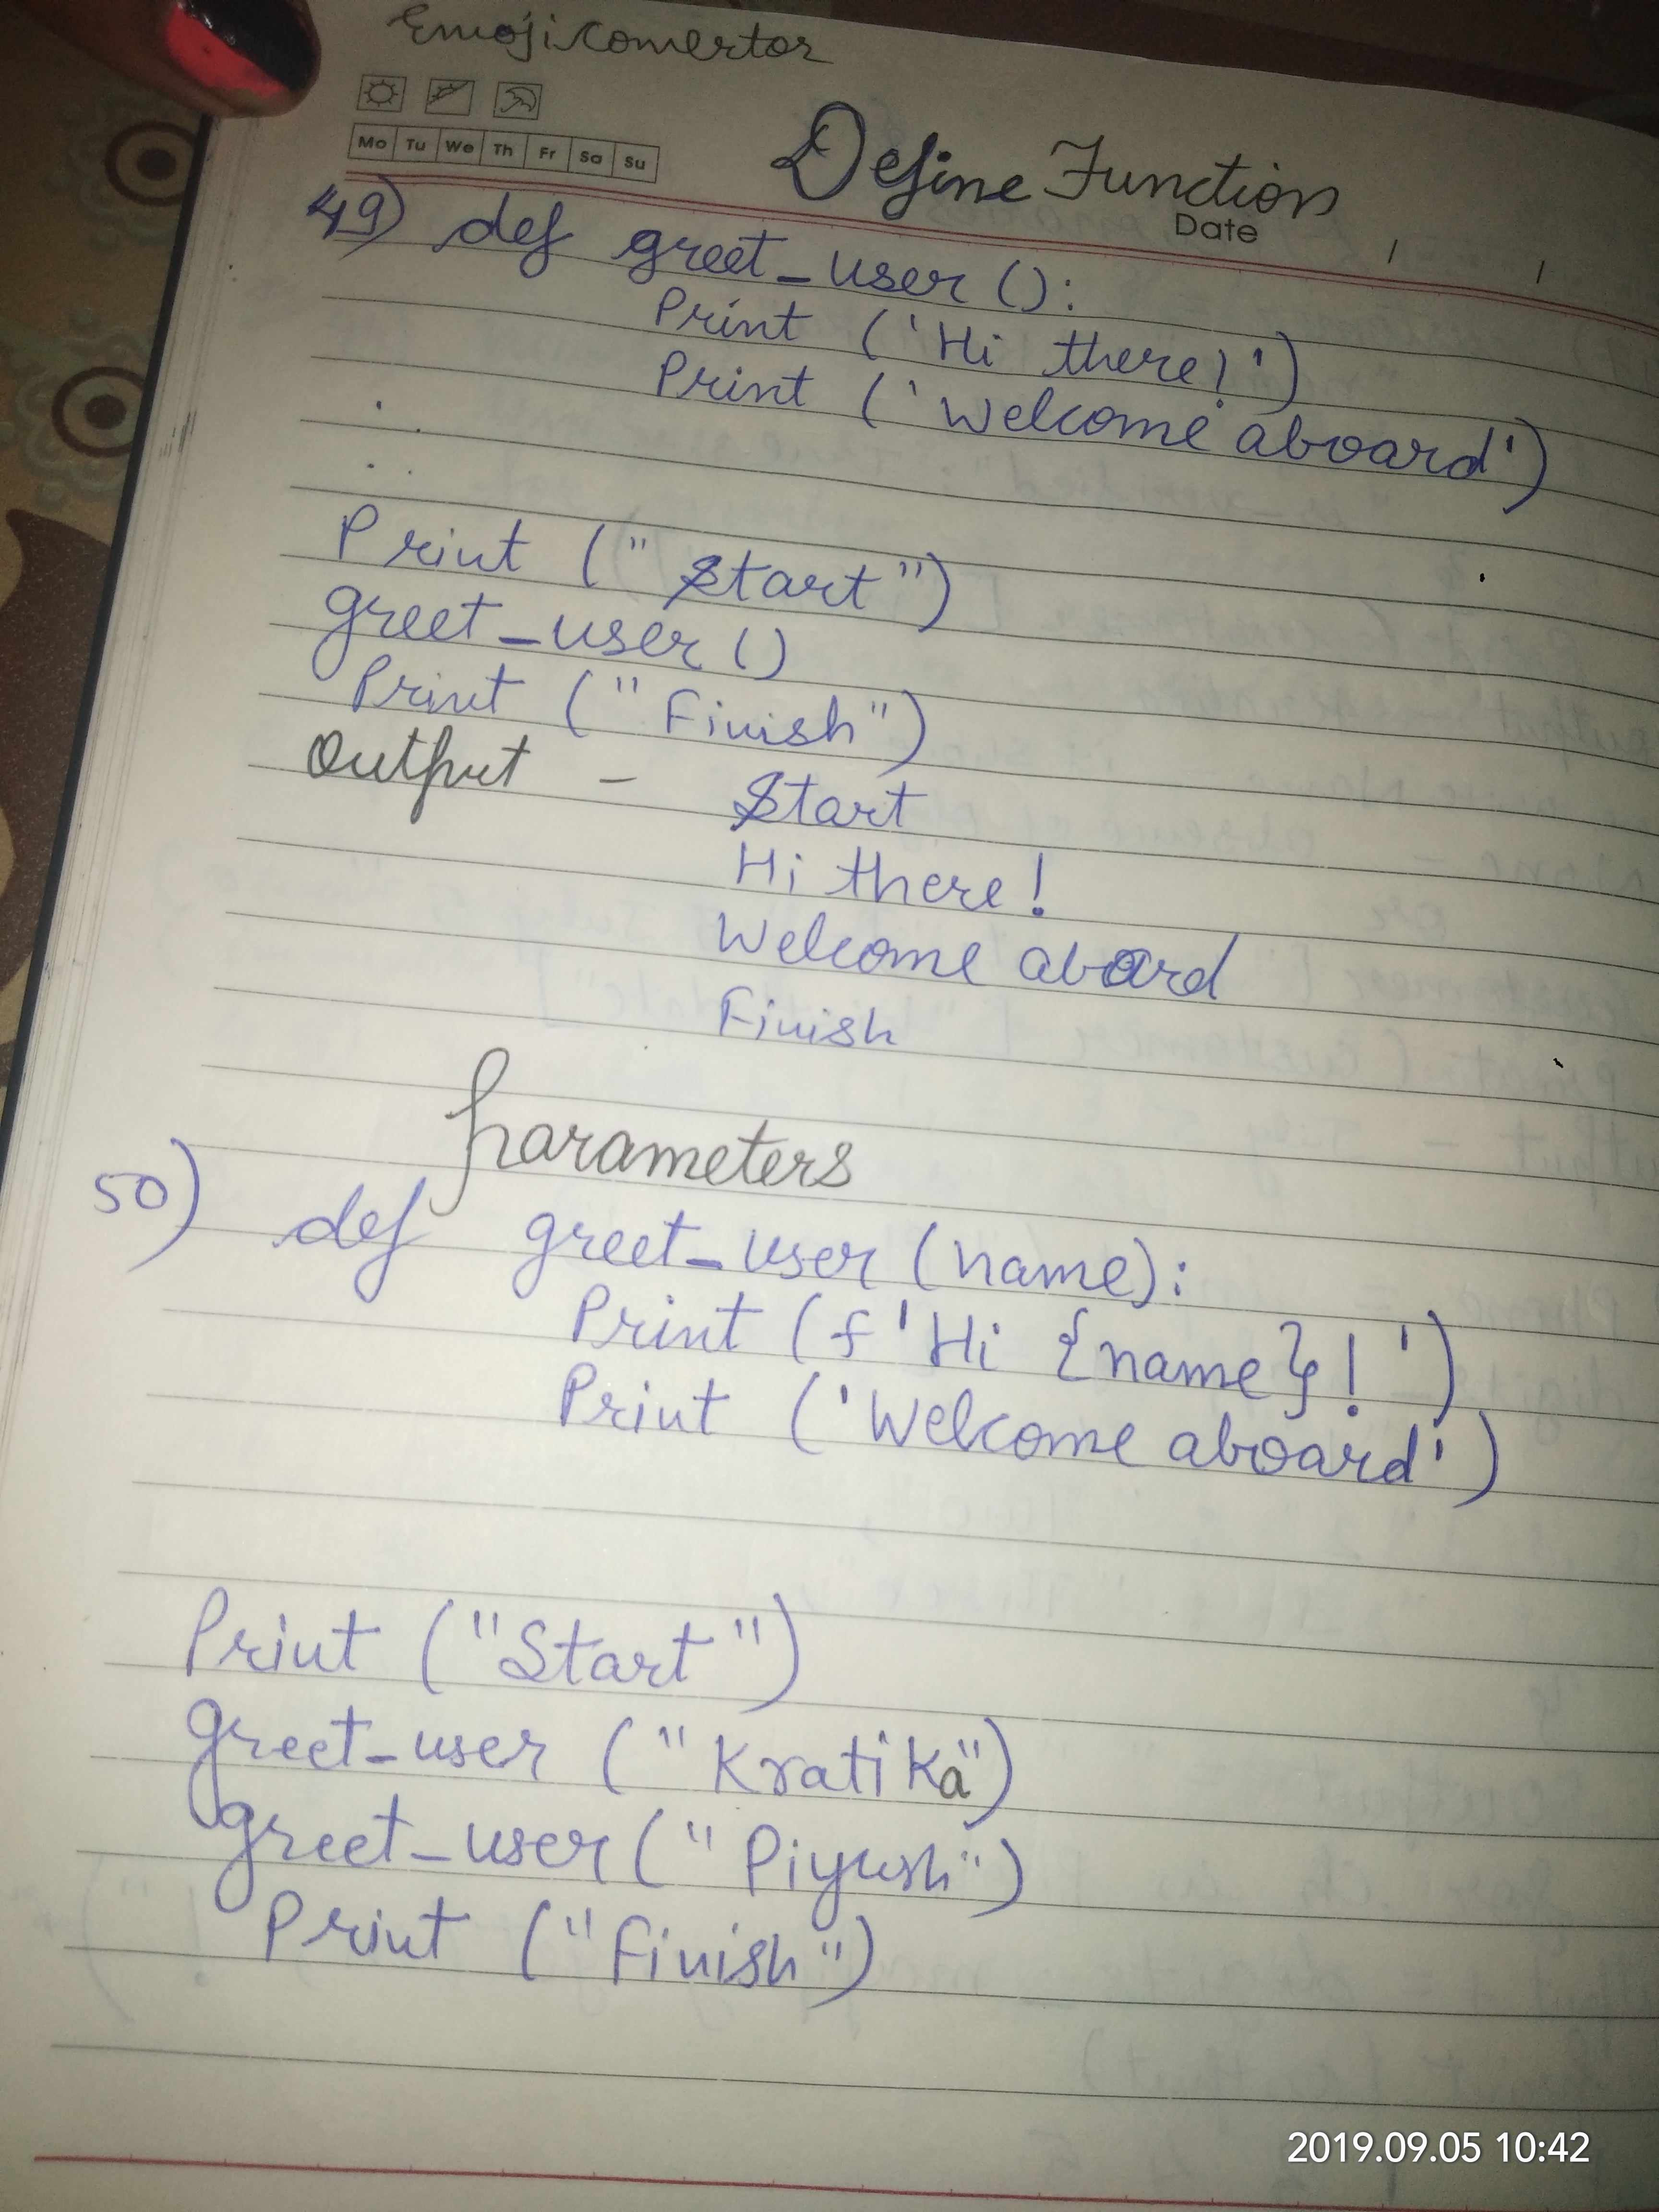 Emoji Convertor
Mo Tu We Th Fr Sa Su
Define Function
Date / /
49) def greet_user ():
Print ('Hi there!')
Print ('Welcome aboard')
Print ("Start")
greet_user ()
Print ("Finish")
Output - Start
Hi there!
Welcome aboard
Finish
Parameters
50) def greet_user (name):
Print (f'Hi {name}!')
Print ('Welcome aboard')
Print ("Start")
greet_user ("Kratika")
greet_user ("Piyush")
Print ("Finish")
2019.09.05 10:42